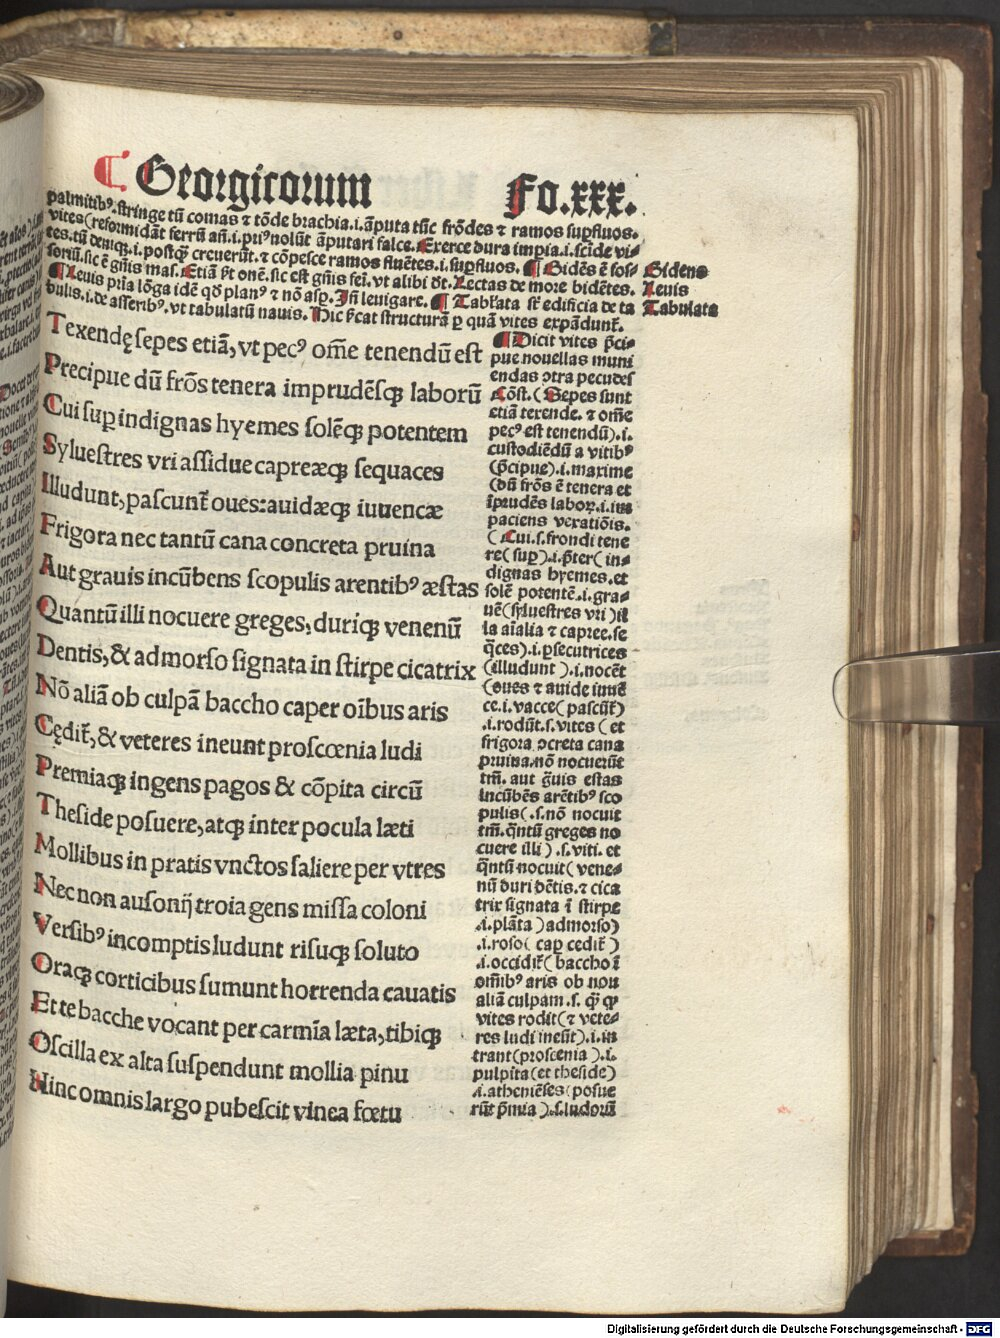 Georgicorum Fo.xxx.
palmitibꝰ.stringe tū comas ⁊ tōde brachia.i.āputa tūc frōdes ⁊ ramos supfluos.
vites(reformidāt ferrū añ.i.priꝰ nolūt āputari falce. Exerce dura impia.i.scide vi-
tes.tū deniqꝫ.i.postqȝ creuerūt.⁊ cōpesce ramos fluētes.i.supfluos. ¶ Bidēs ē sos-
soriū.sic ē gñis mas. Etiā ꝓt onē.sic est gñis fei.vt alibi dt. Lectas de more bidētes.
¶ Leuis pria lōga idē qd planꝰ ⁊ nō asp. Iñ leuigare. ¶ Tablata st edificia de ta
bulis.i.de asseribꝰ.vt tabulatū nauis. Hic ſicat structurā p quā vites expādunt.
Bidens
Leuis
Tabulata
Texendę sepes etiā, vt pecꝰ om̄e tenendū est
Precipue dū frōs tenera imprudēsqꝫ laborū
Cui sup indignas hyemes solēqꝫ potentem
Syluestres vri assidue capreæqꝫ sequaces
Illudunt, pascunt̄ oues: auidæqꝫ iuuencæ
Frigora nec tantū cana concreta pruina
Aut grauis incūbens scopulis arentibꝰ æstas
Quantū illi nocuere greges, duriqꝫ venenū
Dentis, & admorso signata in stirpe cicatrix
Nō aliā ob culpā baccho caper oībus aris
Cędit̄, & veteres ineunt proscœnia ludi
Premiaqꝫ ingens pagos & cōpita circū
Theside posuere, atqꝫ inter pocula læti
Mollibus in pratis vnctos saliere per vtres
Nec non ausonij troia gens missa coloni
Versibꝰ incomptis ludunt risuqꝫ soluto
Oraqꝫ corticibus sumunt horrenda cauatis
Et te bacche vocant per carmīa læta, tibiqꝫ
Oscilla ex alta suspendunt mollia pinu
Hinc omnis largo pubescit vinea fœtu
¶ Dicit vites p̄ci-
pue nouellas muni
endas ɔtra pecudes
Cōst. (Sepes sunt
etiā texende.⁊ om̄e
pecꝰ est tenendū).i.
custodiēdū a vitibꝰ
(p̄cipue).i.maxime
(dū frōs ē tenera et
īprudēs laboꝝ.i.im
paciens vexatiōis.
(Cui.s.frondi tene
re(sup).i.p̄ter(in-
dignas hyemes.et
solē potentē.i.gra-
uē(syluestres vri)il
la aīalia ⁊ capree.se
q̄ces).i.psecutrices
(illudunt).i.nocēt
(oues ⁊ auide iuuē
ce.i.vacce(pascūt̄)
.i.rodūt.s.vites(et
frigora ɔcreta cana
pruina.nō nocuerūt
tm̄.aut g̃uis estas
incūbēs arētibꝰ sco
pulis(.s.nō nocuit
tm̄.q̄ntū greges no
cuere illi).s.viti.et
q̄ntū nocuit(vene-
nū duri dētis.⁊ cica
trix signata ī stirpe
.i.plāta)admorso)
.i.roso(cap cedit̄)
.i.occidit̄(baccho ī
om̄ibꝰ aris ob non
aliā culpam.s.q̄ȝ qꝛ
vites rodit(⁊ vete-
res ludi ineūt).i.in
trant(proscenia).i.
pulpita(et theside)
.i.atheniēses(posue
rūt p̄mia).s.ludorū
Digitalisierung gefördert durch die Deutsche Forschungsgemeinschaft - DFG